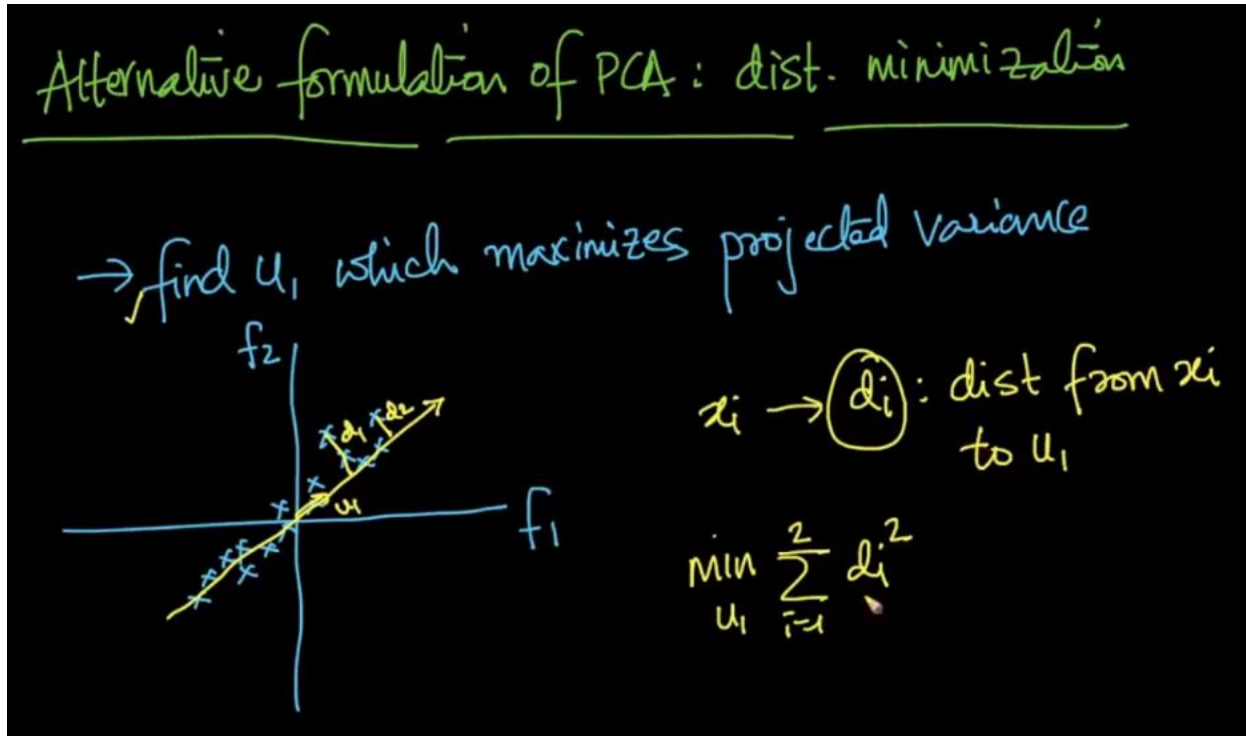 Alternative formulation of PCA : dist. minimization
→ find u₁ which maximizes projected variance
f₂
d₁
d₂
u₁
f₁
xᵢ → dᵢ : dist from xᵢ
to u₁
min ∑ dᵢ²
u₁
2
i=1